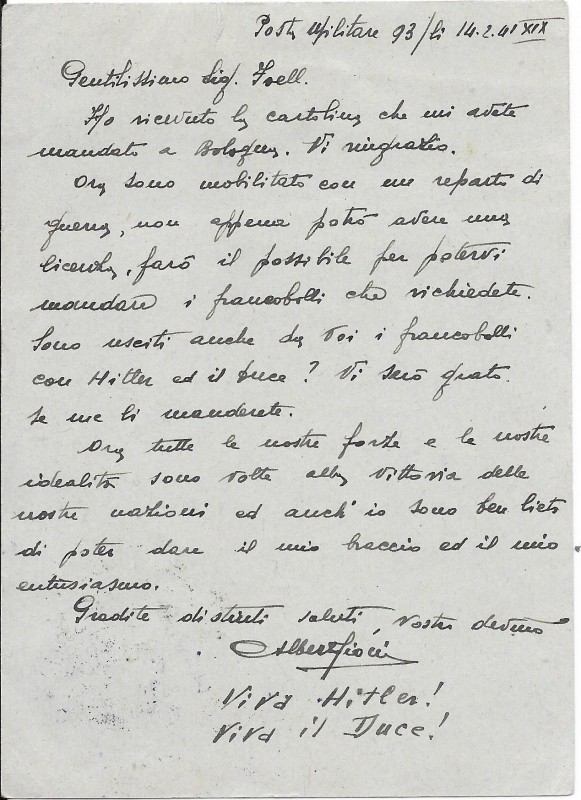 Posta Militare 93/ li 14.2.41 XIX
Gentilissimo Sig.
Ho ricevuto la cartolina che mi avete
mandato a Bologna. Vi ringrazio.
Ora sono mobilitato con un reparto di
guerra, non appena potrò avere una
licenza, farò il possibile per potervi
mandare i francobolli che richiedete.
Sono usciti anche da Voi i francobolli
con Hitler ed il Duce? Vi sarò grato
se me li manderete.
Ora tutte le nostre forze e le nostre
idealità sono volte alla Vittoria delle
nostre nazioni ed anch'io sono ben lieto
di poter dare il mio braccio ed il mio
entusiasmo.
Gradite distinti saluti, Vostro
Viva Hitler!
Viva il Duce!